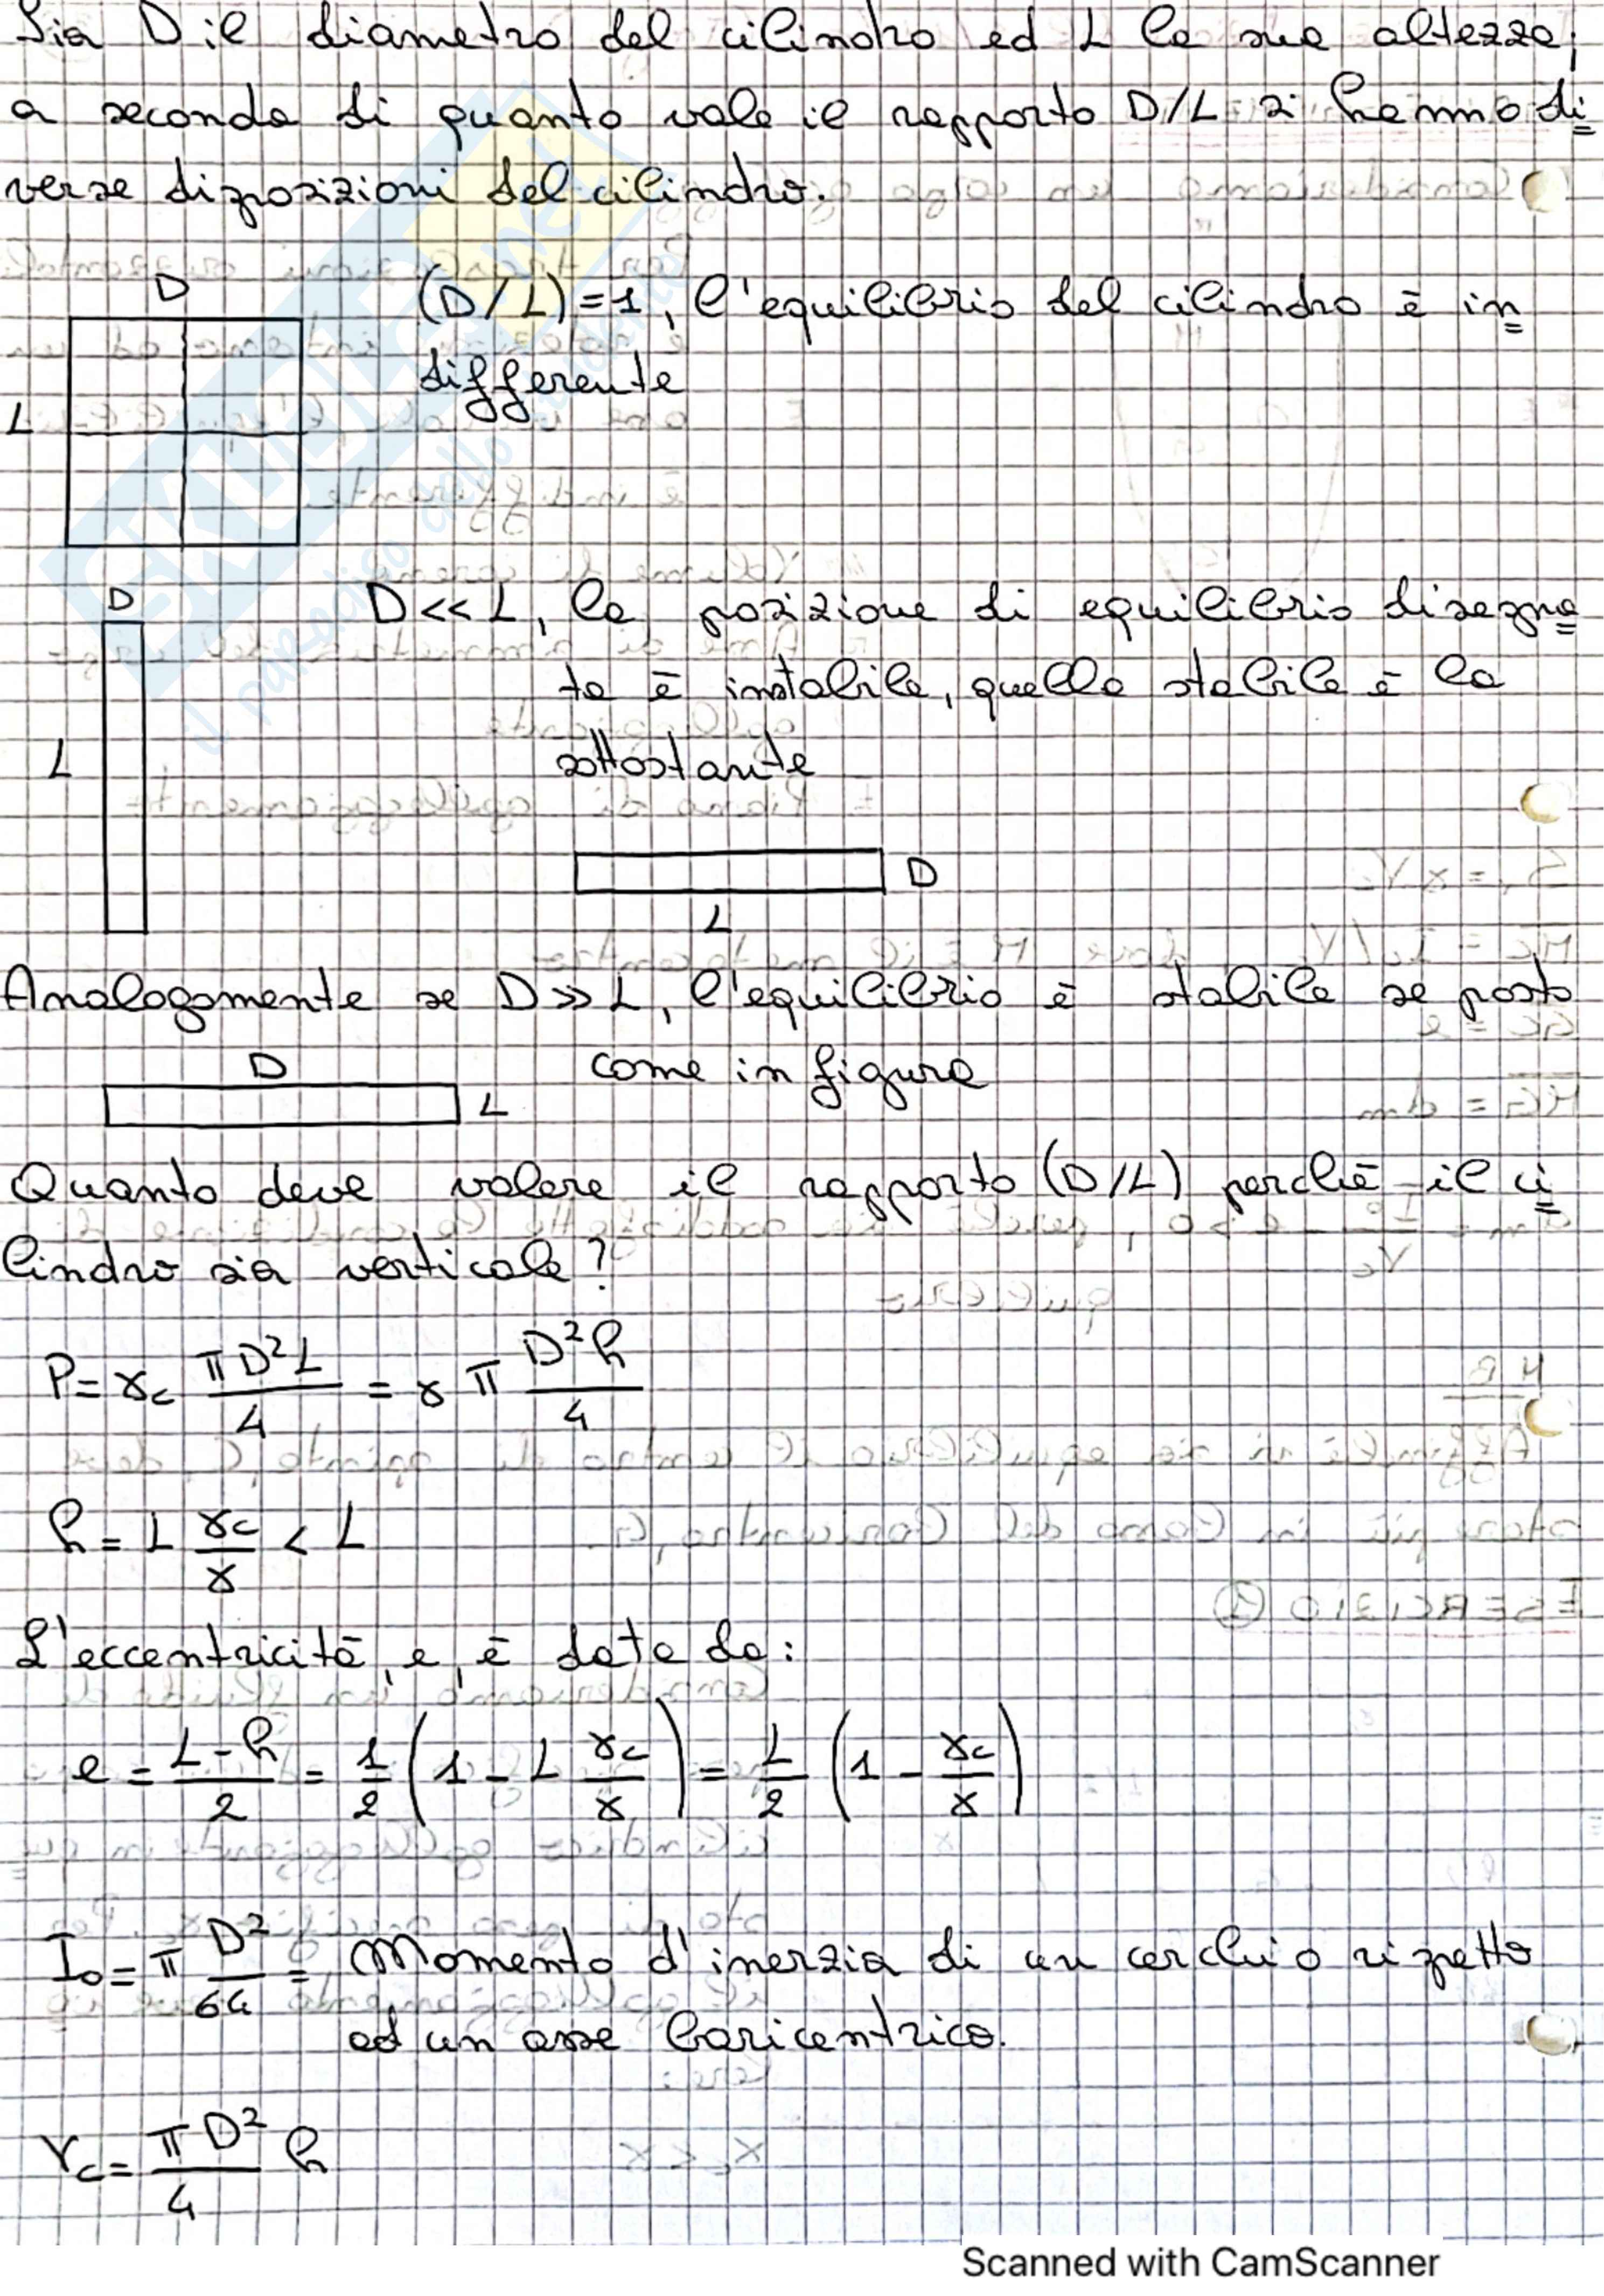 Sia D il diametro del cilindro ed L la sua altezza;
a seconda di quanto vale il rapporto D/L si hanno di
verse disposizioni del cilindro.
D
L
(D/L)=1, l'equilibrio del cilindro è in
differente
D
L
D<<L, la posizione di equilibrio disegna
ta è instabile, quella stabile è la
sottostante
D
L
Analogamente se D>>L, l'equilibrio è stabile se posto
come in figura
D
L
Quanto deve valere il rapporto (D/L) perchè il ci
lindro sia verticale?
P = γc πD²L/4 = γ π D²h/4
h = L γc/γ < L
L'eccentricità, e, è data da:
e = L-h/2 = 1/2 (1 - L γc/γ) = L/2 (1 - γc/γ)
I₀ = π D²/64 = Momento d'inerzia di un cerchio rispetto
ad un asse baricentrico.
Vc = πD²/4 h
SKUOLA.net
il paradiso dello studente
Scanned with CamScanner